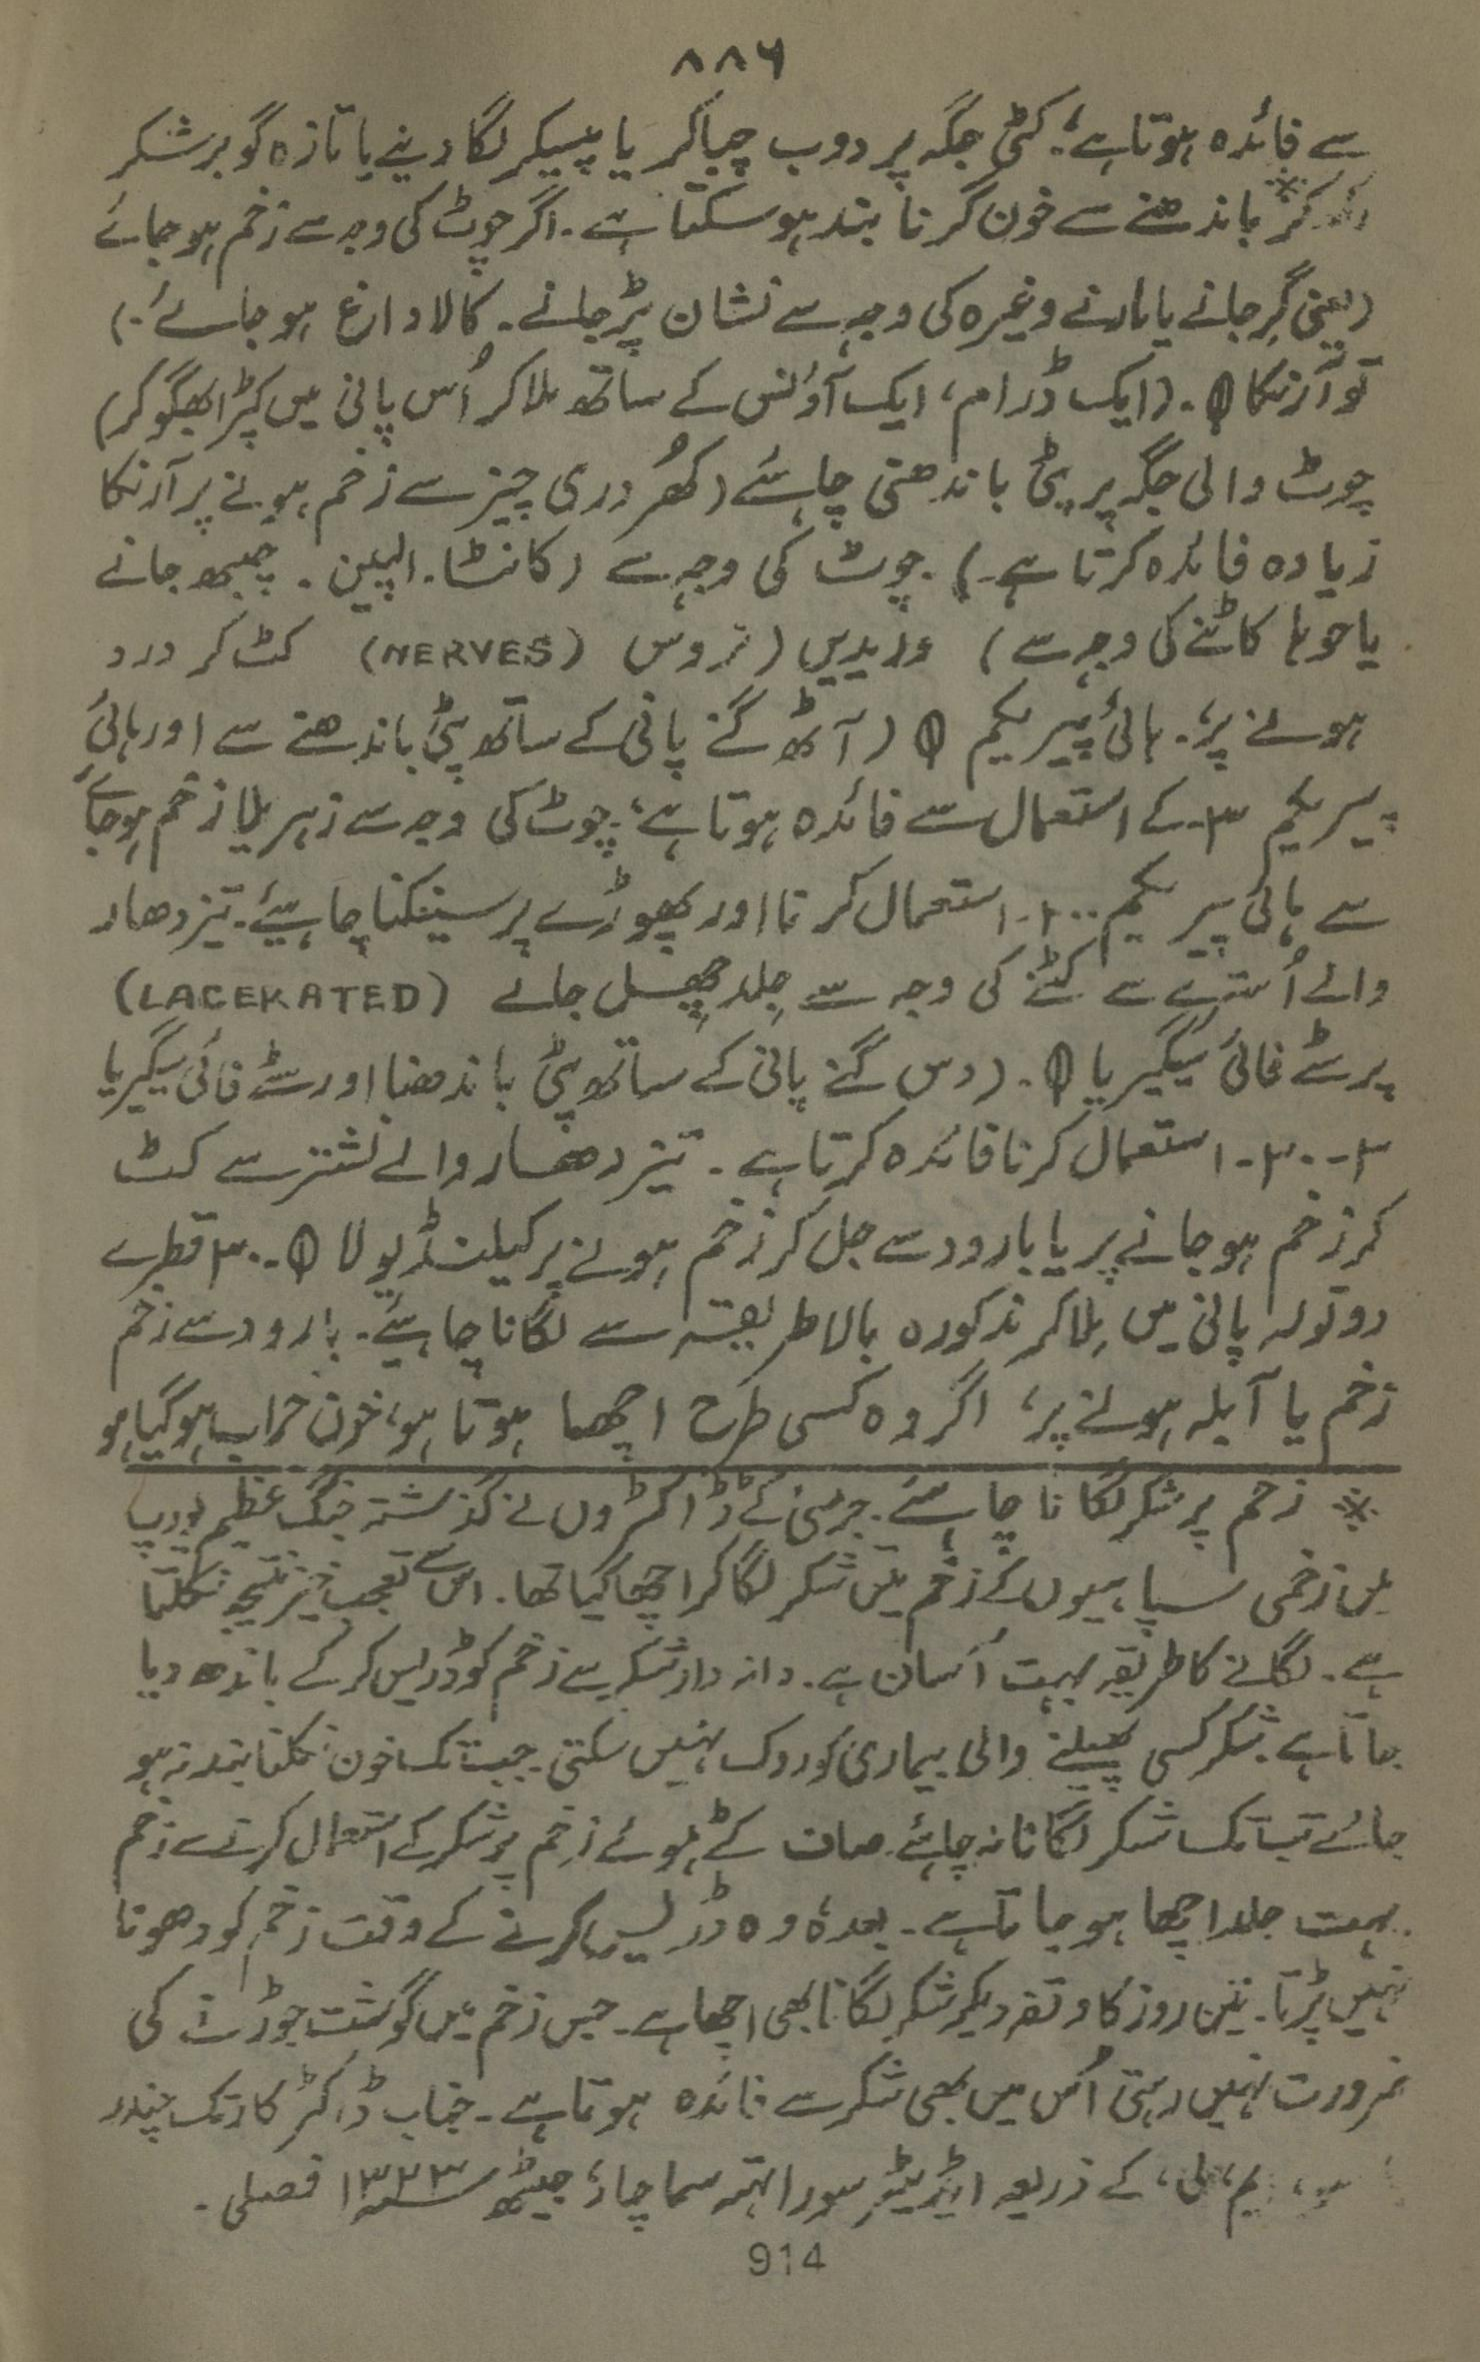 ۸۸۶
سے فائدہ ہوتا ہے؛ کٹی جگہ پر دوب چباکر یا پیسکر لگا دینے یا تازہ گوبر شکر
کر* باندھنے سے خون گرنا بند ہو سکتا ہے۔ اگر چوٹ کی وجہ سے زخم ہو جائے
(یعنی گِر جانے یا مارنے وغیرہ کی وجہ سے نشان پڑ جانے۔ کالا داغ ہو جائے۔)
تو آرنکا Φ۔ (ایک ڈرام، ایک آؤنس کے ساتھ ملا کر اُس پانی میں کپڑا بھگو کر)
چوٹ والی جگہ پر پٹی باندھنی چاہئے (کھُردری چیز سے زخم ہونے پر آرنکا
زیادہ فائدہ کرتا ہے۔)۔ چوٹ کی وجہ سے (کانٹا۔ الپین۔ چبھ جانے
یا چوہا کاٹنے کی وجہ سے) وریدیں (نروس (NERVES) کٹ کر درد
ہونے پر؛۔ ہائی پیریکم Φ (آٹھ گنے پانی کے ساتھ پٹی باندھنے سے اور ہائی
پیریکم ۳۔ کے استعمال سے فائدہ ہوتا ہے؛ چوٹ کی وجہ سے زہریلا زخم ہو جائے
سے ہائی پیریکم ۲۰۰۔ استعمال کرنا اور پھوڑے پر سینکنا چاہئیے۔ تیز دھار
والے اُسترے سے کٹنے کی وجہ سے جِلد چھِل جانے (LACERATED)
پر سٹے فائی سیگیریا Φ۔ (دس گنے پانی کے ساتھ پٹی باندھنا اور سٹے فائی سیگیریا
۳۔۳۰۔ استعمال کرنا فائدہ کرتا ہے۔ تیز دھار والے نشتر سے کٹ
کر زخم ہو جانے پر یا بارود سے جل کر زخم ہونے پر کیلنڈیولا Φ۔ ۳۰ قطرے
دو تولہ پانی میں مِلا کر مذکورہ بالا طریقہ سے لگانا چاہئیے۔ بارود سے زخم
زخم یا آبلہ ہونے پر؛ اگر وہ کسی طرح اچھا ہوتا ہو، خون خراب ہو گیا ہو
* زخم پر شکر لگانا چاہئے۔ جرمنی کے ڈاکٹروں نے گذشتہ جنگ عظیم یورپ
میں زخمی سپاہیوں کے زخم میں شکر لگا کر اچھا کیا تھا۔ اس سے تعجب خیز نتیجہ نکلتا
ہے۔ لگانے کا طریقہ بہت آسان ہے۔ دانہ دار شکر سے زخم کو ڈریس کر کے باندھ دیا
جاتا ہے۔ شکر کسی پھیلنے والی بیماری کو روک نہیں سکتی۔ جب تک خون نکلنا بند نہ ہو
جائے تب تک شکر لگانا نہ چاہئے۔ صاف کٹے ہوئے زخم پر شکر کے استعمال کرنے سے زخم
بہت جلد اچھا ہو جاتا ہے۔ بعدہٗ وہ ڈریس کرنے کے وقت زخم کو دھونا
نہیں پڑتا۔ تین روز کا وقفہ دیکر شکر لگانا بھی اچھا ہے۔ جس زخم میں گوشت جوڑنے کی
ضرورت نہیں رہتی اُس میں بھی شکر سے فائدہ ہوتا ہے۔ جناب ڈاکٹر کارتک چندر
کے ذریعہ ایڈیٹر سماچار؛ جیٹھ سنہ ۱۳۲۳ فصلی۔
914